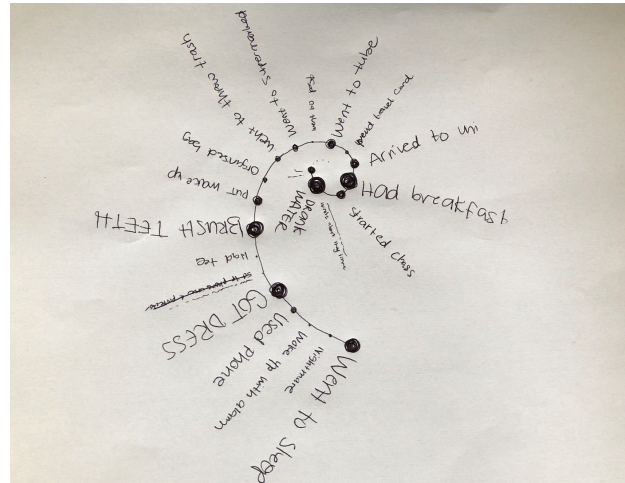 Went to sleep
Nightmare
Woke up with alarm
Used phone
GOT DRESS
Had tea
BRUSH TEETH
put make up
organised bag
went to throw trash
Went to supermarket
went to
Went to tube
travel card
Arrived to uni
Had breakfast
started class
DRANK WATER